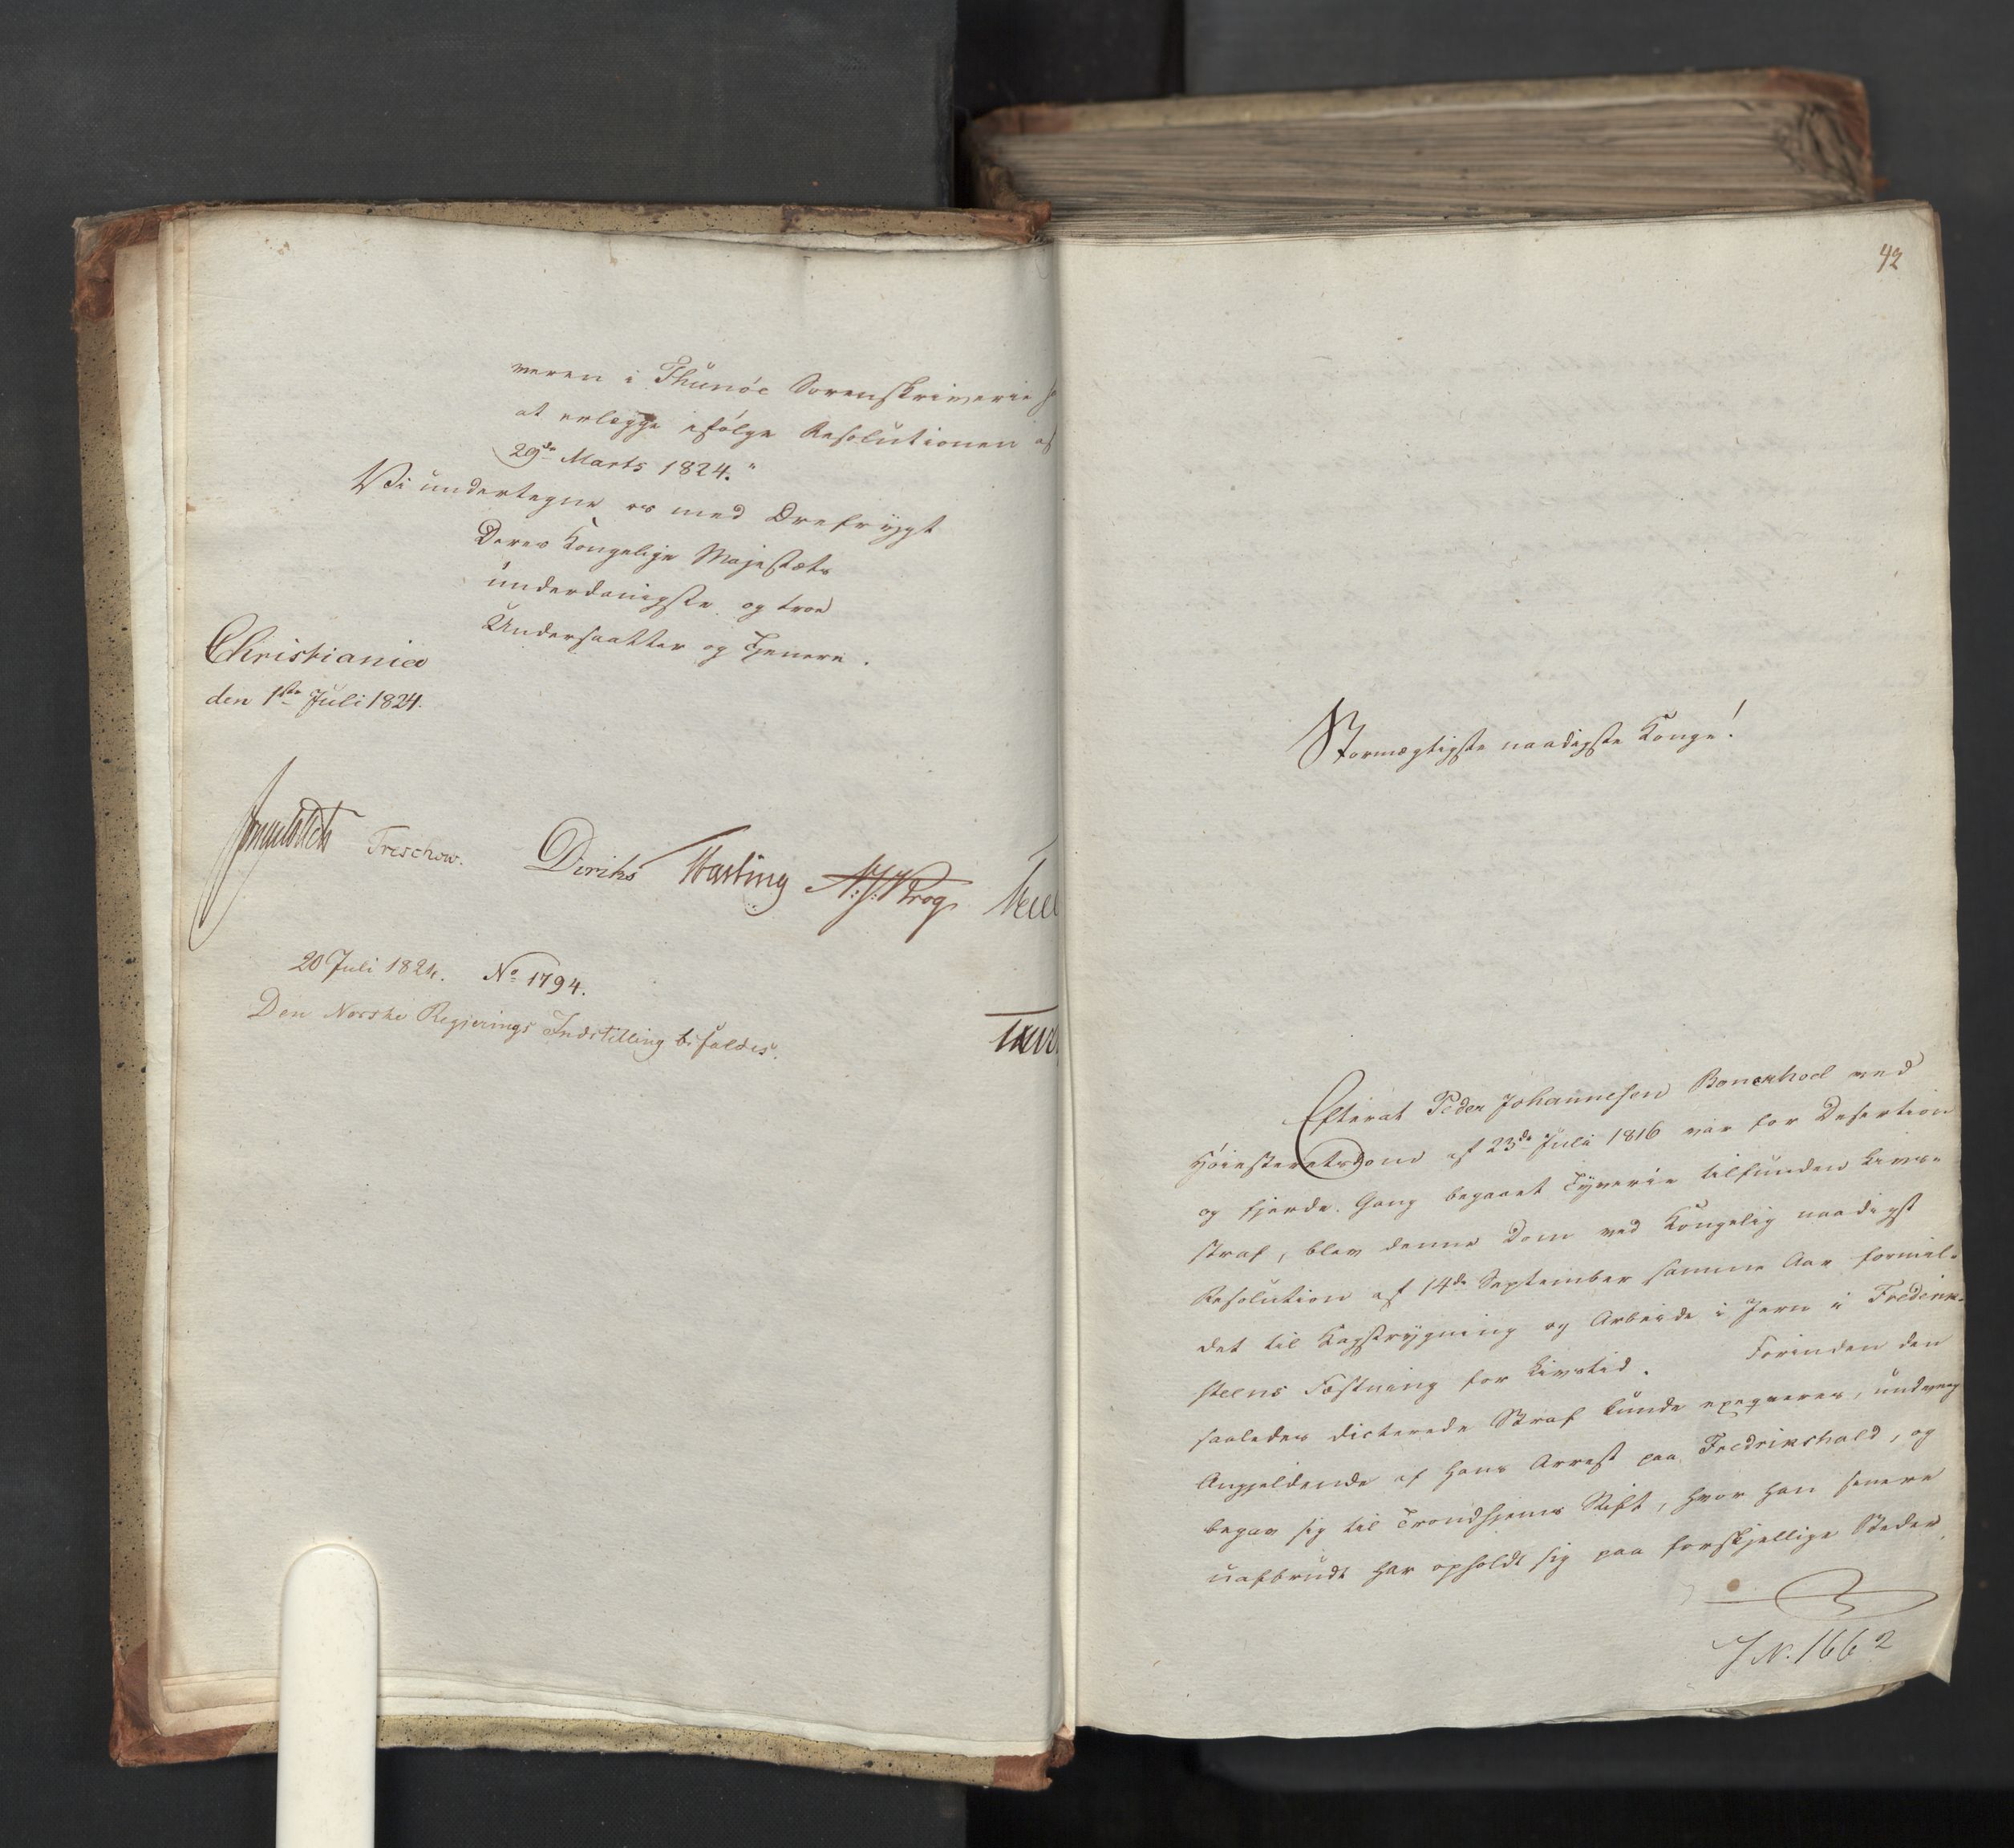 veren i Thunøe Sorenskriverie
at erlægge ifølge Resolutionen af
29de Marts 1824."
Vi undertegne os med Ærefrygt
Deres Kongelige Majestæts
underdanigste og troe
Undersaatter og Tjenere.
Christiania
den 1ste Juli 1824.
Treschow. Diriks Hasting N: J: Krog
20 Juli 1824. No 1794.
Den Norske Regjerings Indstilling bifaldes.
42
Stormægtigste naadigste Konge!
Efterat Peder Johannesen ved
Høiesteretsdom af 23de Juli 1816 var for Desertion
og fjerde Gang begaaet Tyverie tilfunden Livs-
straf, blev denne Dom ved Kongelig naadigst
Resolution af 14de September samme Aar formil-
det til Kagstrygning og Arbeide i Jern i Fredrik-
steens Fæstning for Livstid. Forinden den
saaledes dicterede Straf kunde exeqveres, undveeg
Angjeldende af hans Arrest paa Fredrikshald, og
begav sig til Trondhjems Stift, hvor han senere
uafbrudt har opholdt sig paa forskjellige Steder,
J N. 1662